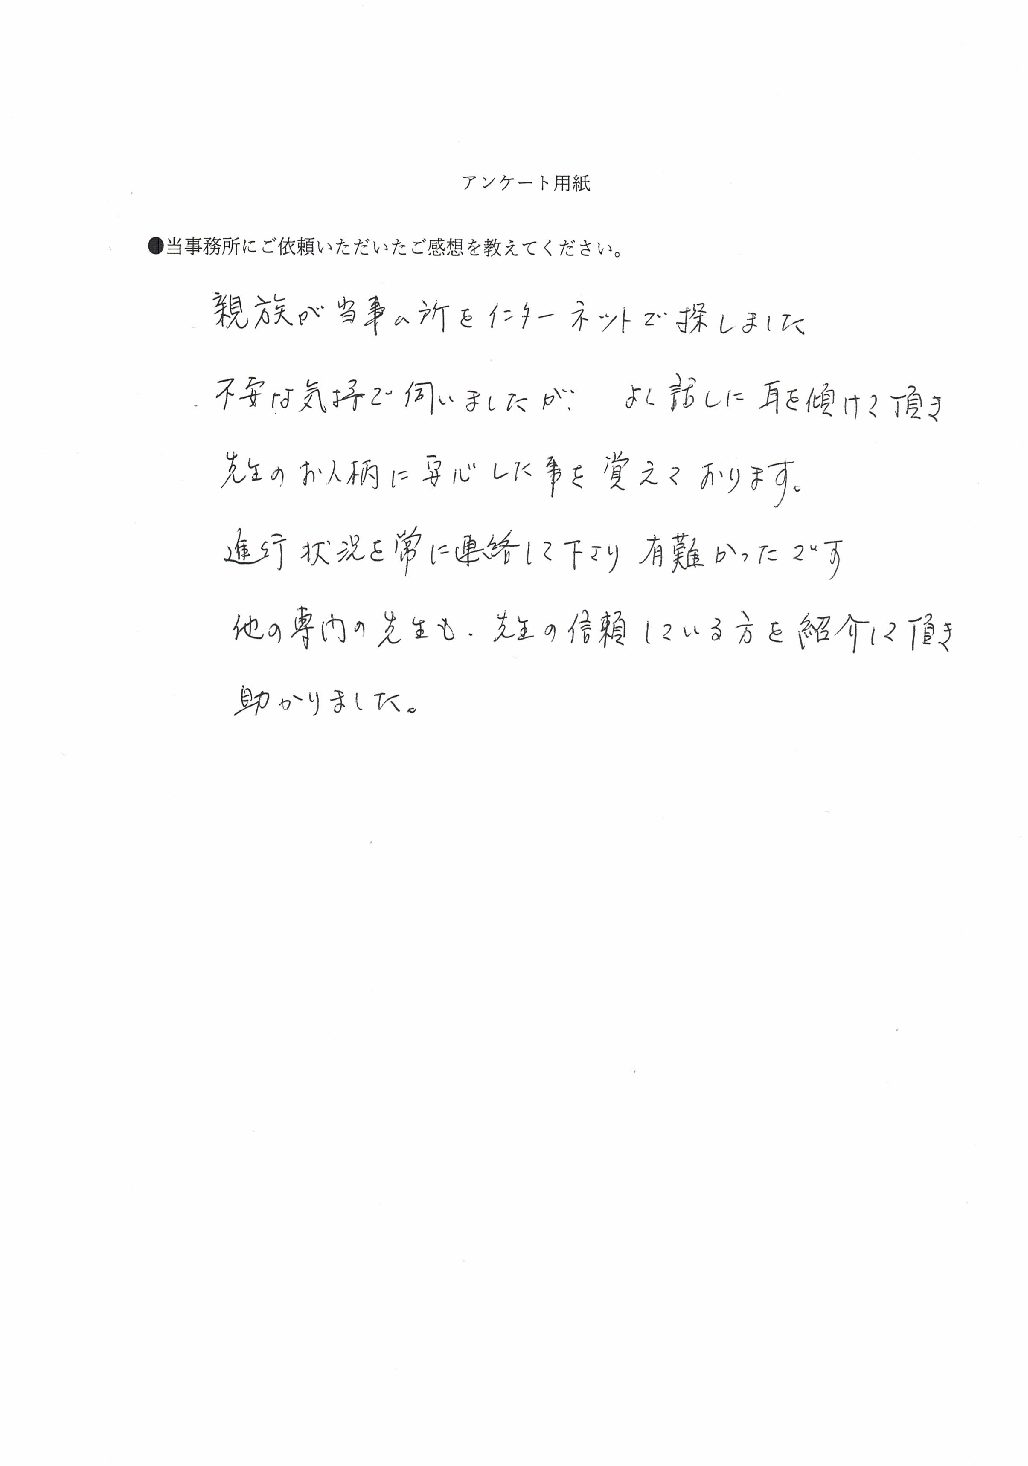 アンケート用紙
●当事務所にご依頼いただいたご感想を教えてください。
親族が当事ム所をインターネットで探しました
不安な気持で伺いましたが、よく話しに耳を傾けて頂き
先生のお人柄に安心した事を覚えております。
進行状況を常に連絡して下さり有難かったです
他の専門の先生も、先生の信頼している方を紹介して頂き
助かりました。